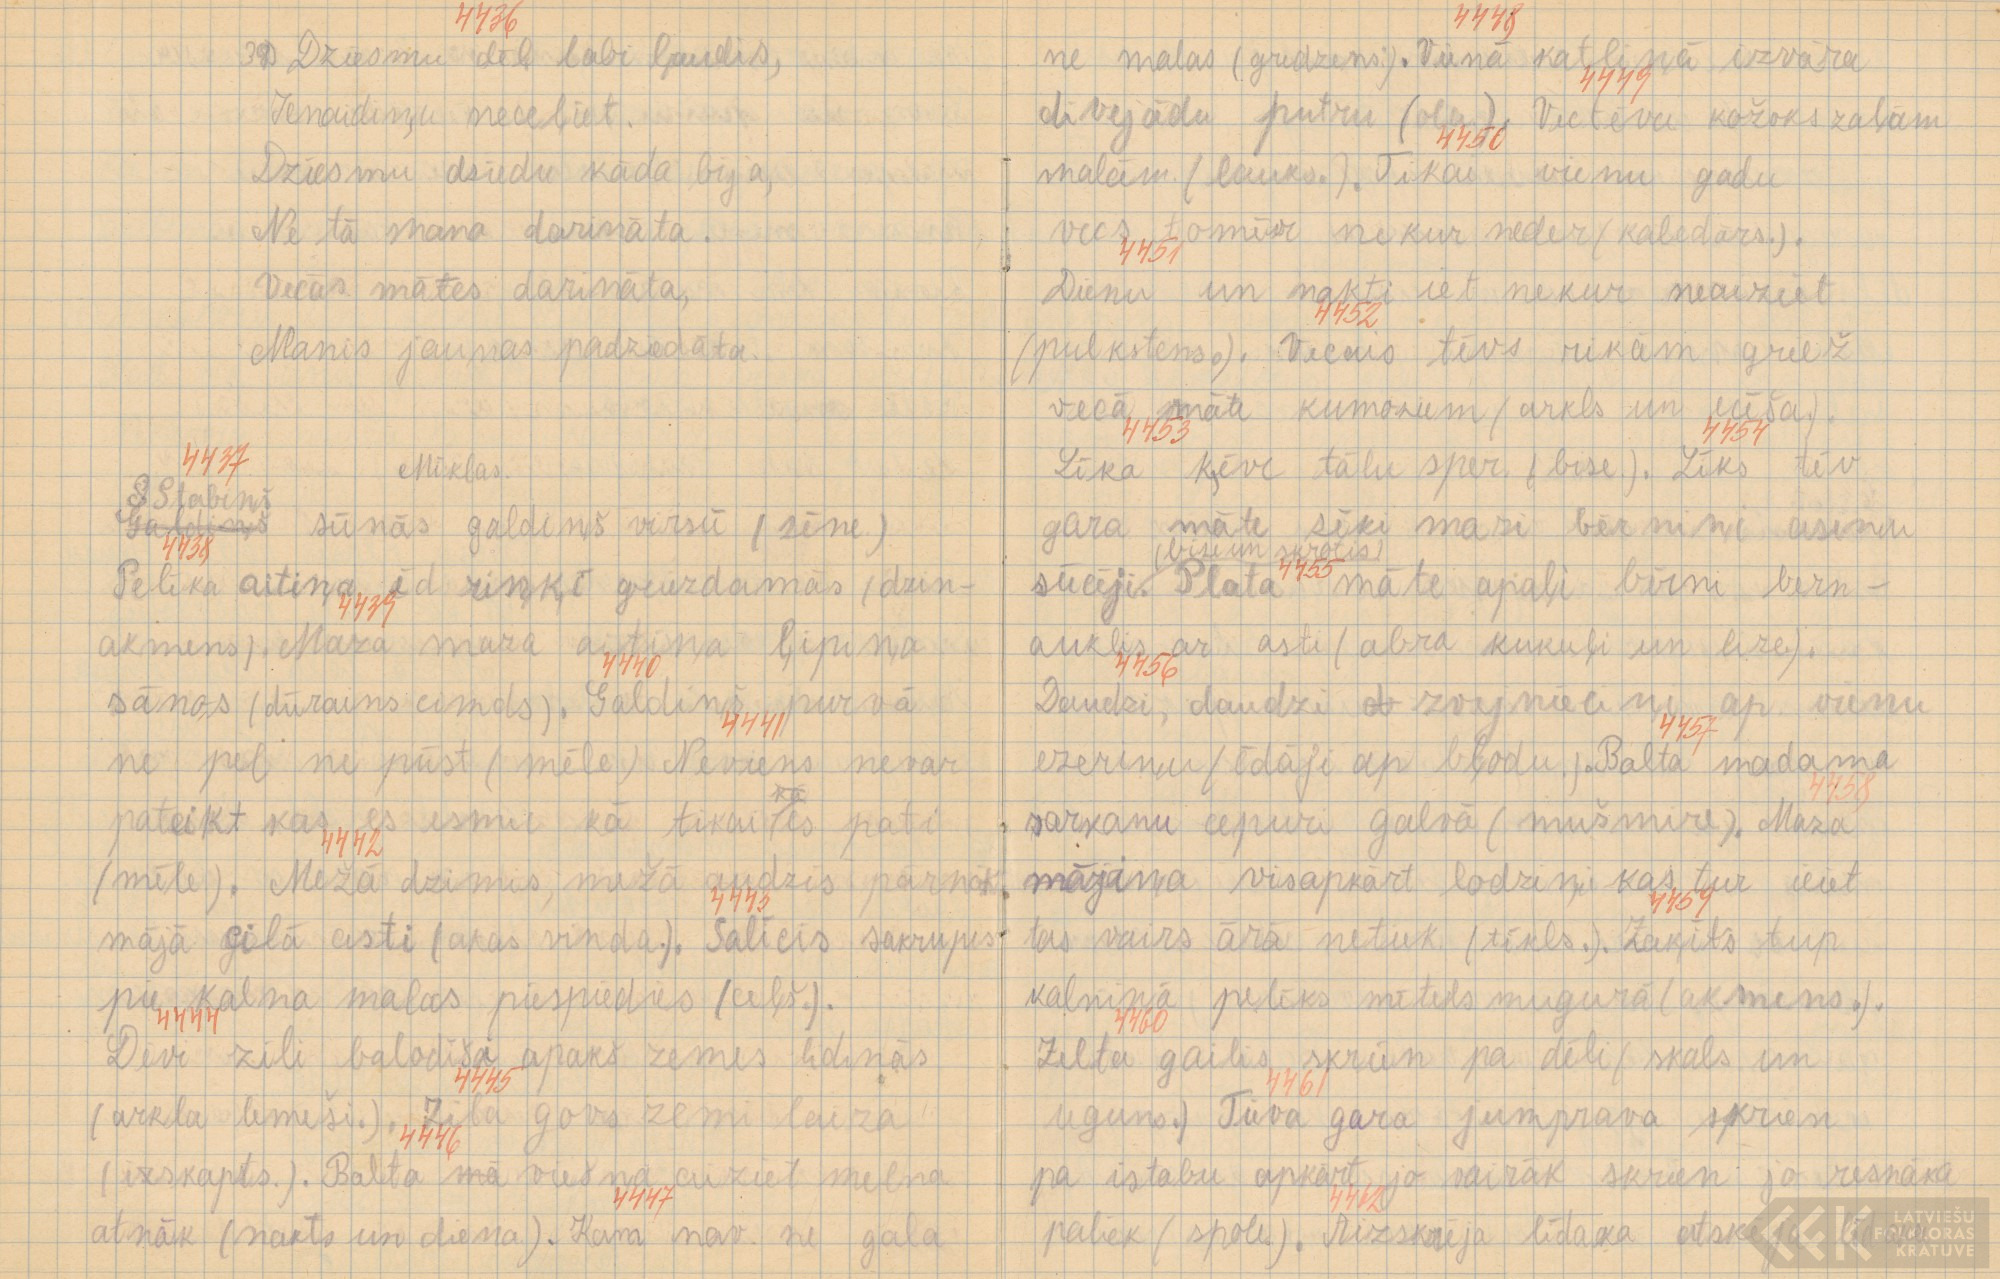 4436
39) Dziesmu dēļ labi ļaudis,
Ienaidiņu neceliet.
Dziesmu dziedu kāda bija,
Ne tā mana darināta.
Vecās mātes darināta,
Manis jaunas padziedāta.
4437
Mīklas.
Stabiņš
Galdiņš sūnās galdiņš virsū (sēne)
4438
Pelēka aitiņa ēd riņķī griezdamās (dzirn-
4439
akmens). Maza maza aitiņa ļipiņa
4440
sānos (dūrains cimds). Galdiņš purvā
4441
ne pel ne pūst (mēle) Neviens nevar
kā
pateikt kas es esmu kā tikai es pati
4442
(mēle). Mežā dzimis, mežā audzis pārnāk
4443
mājā cilā asti (akas vinda.). Salīcis sakrupis
pie kalna malas piespiedies (ceļš.).
4444
Divi zili balodīši apakš zemes lidinās
4445
(arkla lemeši.). Zila govs zemi laiza
4446
(izskapts.). Balta mā viešna aiziet melna
4447
atnāk (nakts un diena). Kam nav ne gala
4448
ne malas (gredzens). Vienā katliņā izvāra
4449
divējādu putru (ola). Vectēvu kožoks zaļām
4450
malām (lauks.). Tikai vienu gadu
vecs tomēr nekur neder (kalendārs.).
4451
Dienu un nakti iet nekur neaiziet
4452
(pulkstens.). Vecais tēvs rikām griež
vecā māte kumosiem (arkls un ecēša).
4453 4454
Līka ķēve tālu sper (bise). Līks tēv
gara māte sīki mazi bērniņi asinu
(bise un skrotis)
sūcēji. Plata 4455 māte apaļi bērni bērn-
auklis ar asti (abra kukuļi un lize).
4456
Daudzi, daudzi zvejnieciņi ap vienu
4457
ezeriņu (ēdāji ap bļodu.). Balta madama
4458
sarkanu cepuri galvā (mušmire). Maza
mājiņa visapkārt lodziņi kas tur ieiet
4459
tas vairs ārā netiek (tīkls.). Zaķīts tup
kalniņā pelēks mētelis mugurā (akmens.).
4460
Zelta gailis skrien pa dēli (skals un
4461
uguns.) Tieva gara jumprava skrien
pa istabu apkārt jo vairāk skrien jo resnāka
4462
paliek (spole). Aizskrēja līdaka atskrēja
LATVIEŠU
FOLKLORAS
KRĀTUVE